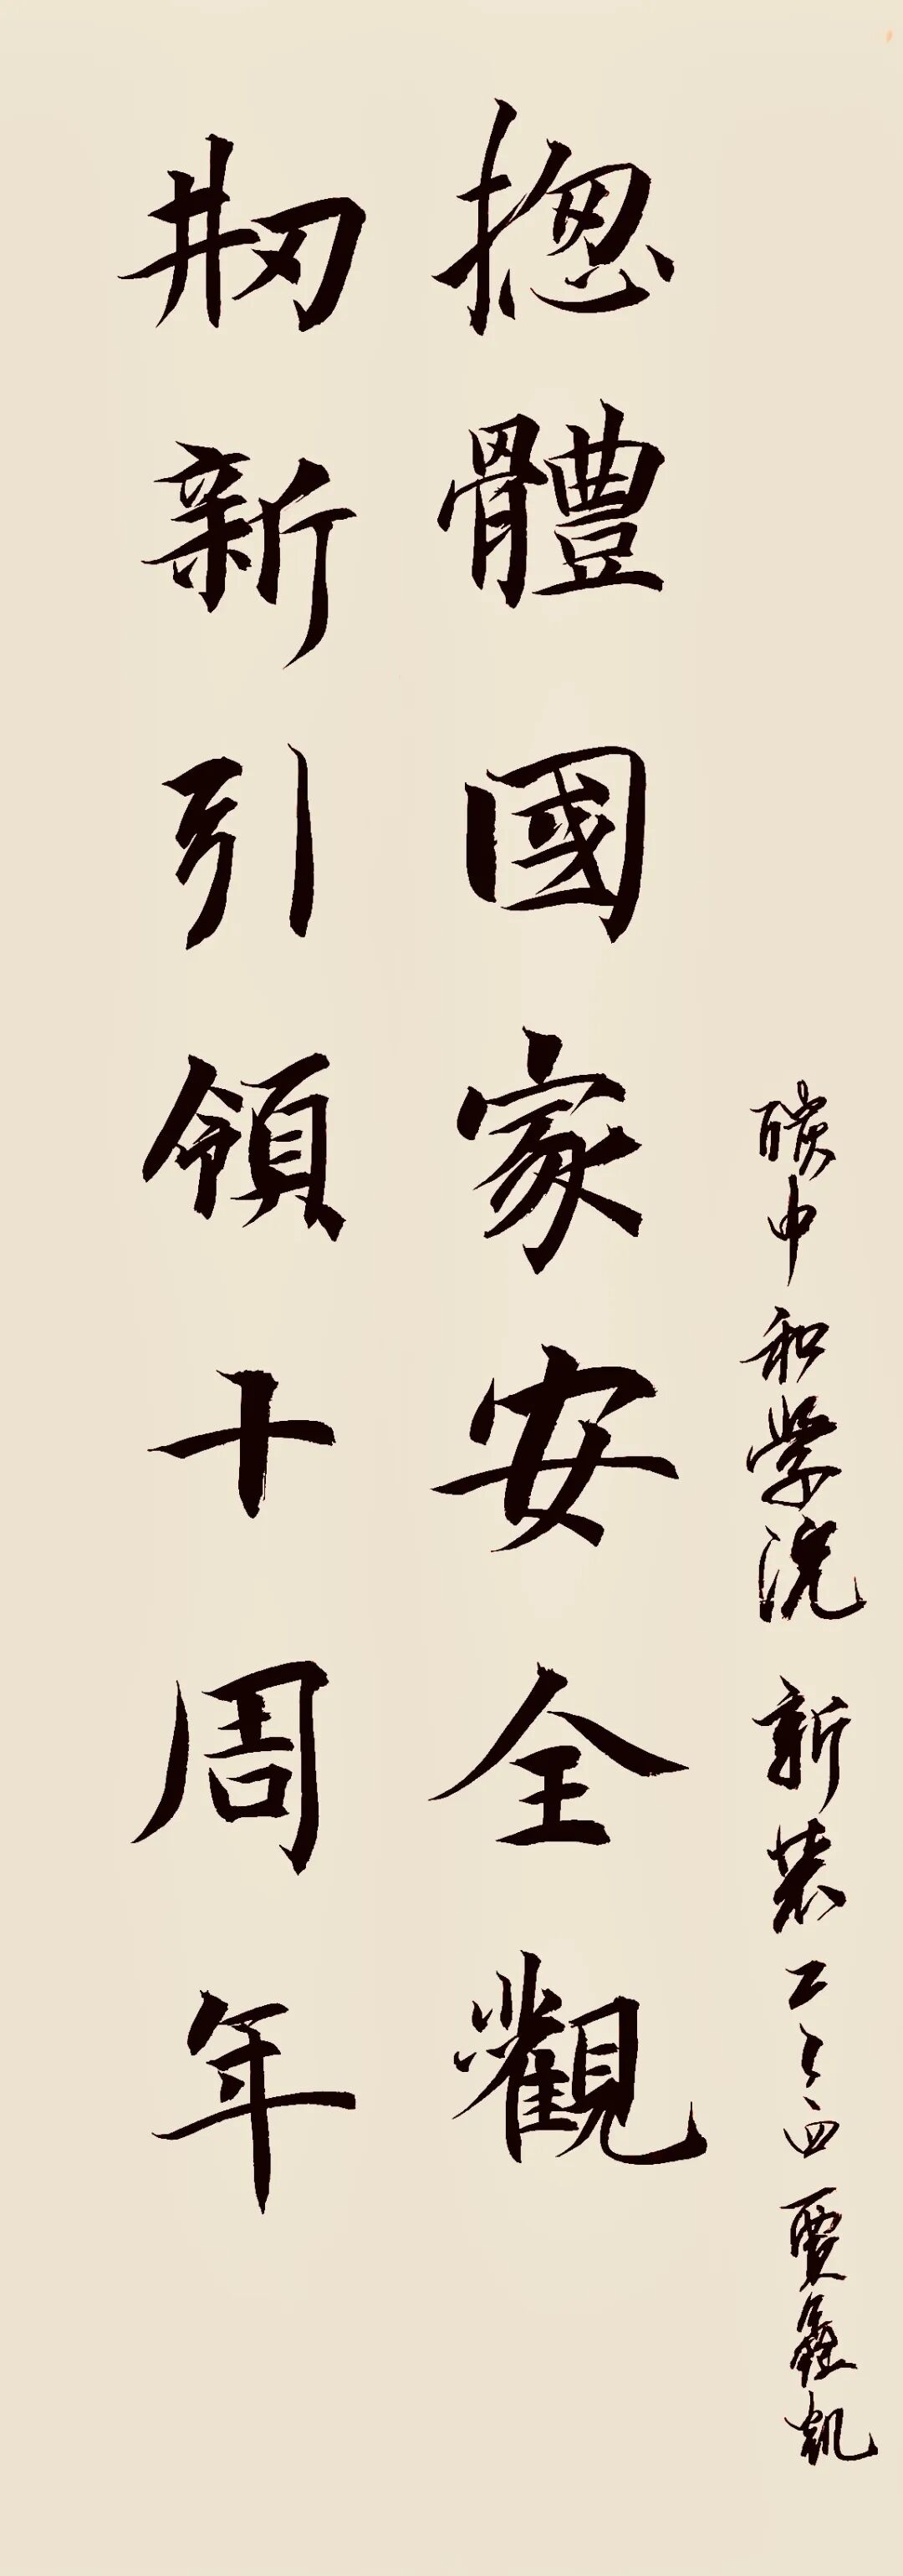 揔體國家安全觀
剏新引領十周年
碳中和学院 新装二〇二四 賈鑫凯